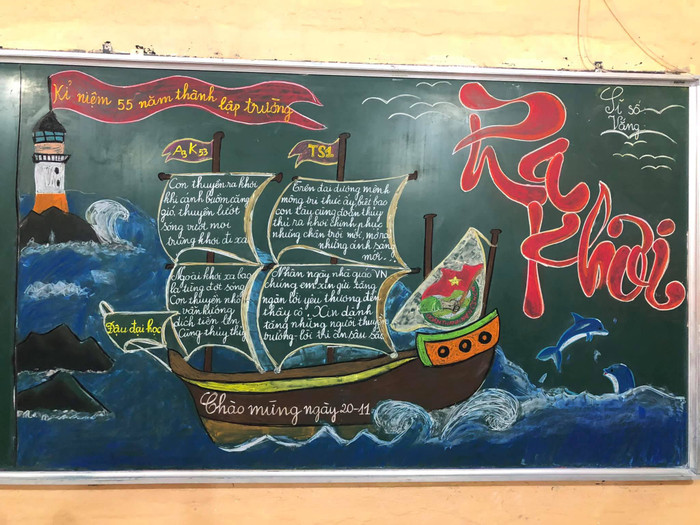 Kỉ niệm 55 năm thành lập trường
Ra
Khơi
Sĩ số
Vắng
A3 K53
TS1
Con thuyền ra khơi
khi cánh buồm căng
gió, thuyền lướt
sóng vượt mọi
trùng khơi đi xa
Trên đại dương mênh
mông tri thức ấy, biết bao
con tay cùng đoàn thủy
thủ ra khơi chinh phục
những chân trời mới, mở ra
những ánh sáng
mới...
Ngoài khơi xa bao
la từng đợt sóng
Con thuyền nhỏ
vẫn hướng
đích tiến lên
Cùng thủy thủ
Nhân ngày nhà giáo VN
chúng em xin gửi tặng
ngàn lời yêu thương đến
thầy cô. Xin dành
tặng những người thuyền
trưởng lời tri ân sâu sắc
Đậu đại học
Chào mừng ngày 20-11